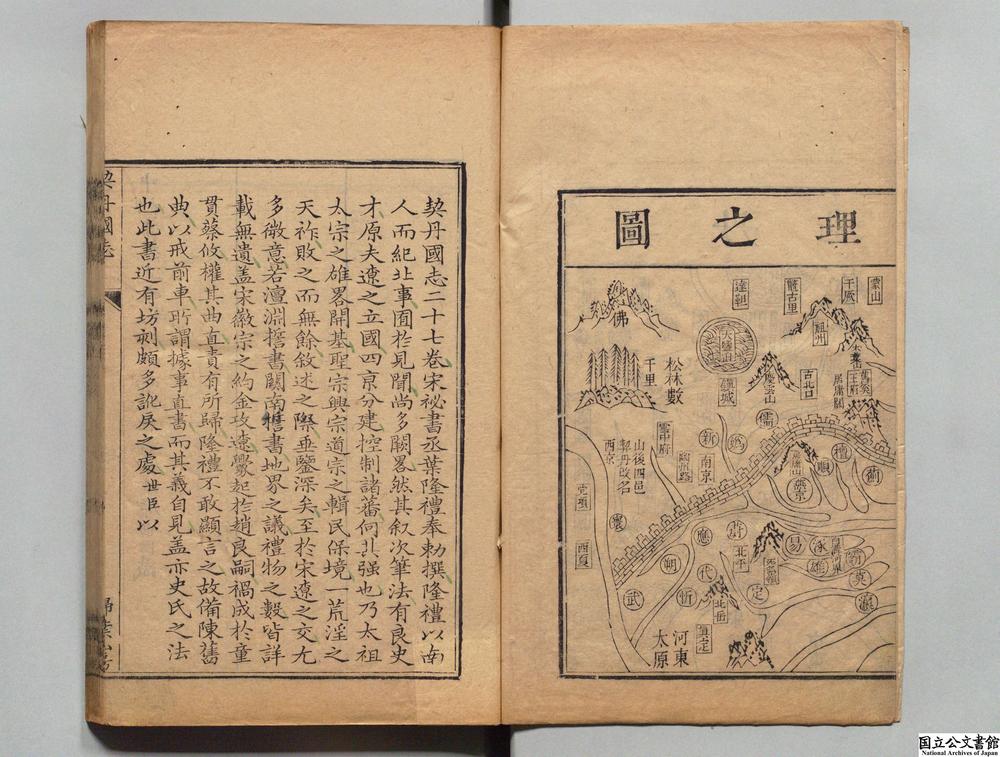 理之圖
蒙山
于厥
鱉古里
達靼
祖州
木葉山
佛
古北口
居庸關
慶雲山
鎮城
松林數
千里
儒
新
檀
薊
順
燕京
雲中府
南京
山後四邑
契丹改名
西京
西夏
寰
應
朔
武
代
忻
易
涿
雄
霸
莫
瀛
定
北平
北岳
真定
河東
太原
契丹國志二十七卷宋祕書丞葉隆禮奉勅撰隆禮以南
人而紀北事固於見聞尚多闕畧然其叙次筆法有良史
才原夫遼之立國四京分建控制諸蕃何其强也乃太祖
太宗之雄畧開基聖宗興宗道宗之輯民保境一荒淫之
天祚敗之而無餘敘述之際垂鑒深矣至於宋遼之交尤
多微意若澶淵誓書關南誓書地界之議禮物之數皆詳
載無遺盖宋徽宗之約金攻遼釁起於趙良嗣禍成於童
貫蔡攸權其曲直責有所歸隆禮不敢顯言之故備陳舊
典以戒前車所謂據事直書而其義自見盖亦史氏之法
也此書近有坊刻頗多訛戾之處世臣以
契丹國志
国立公文書館
National Archives of Japan